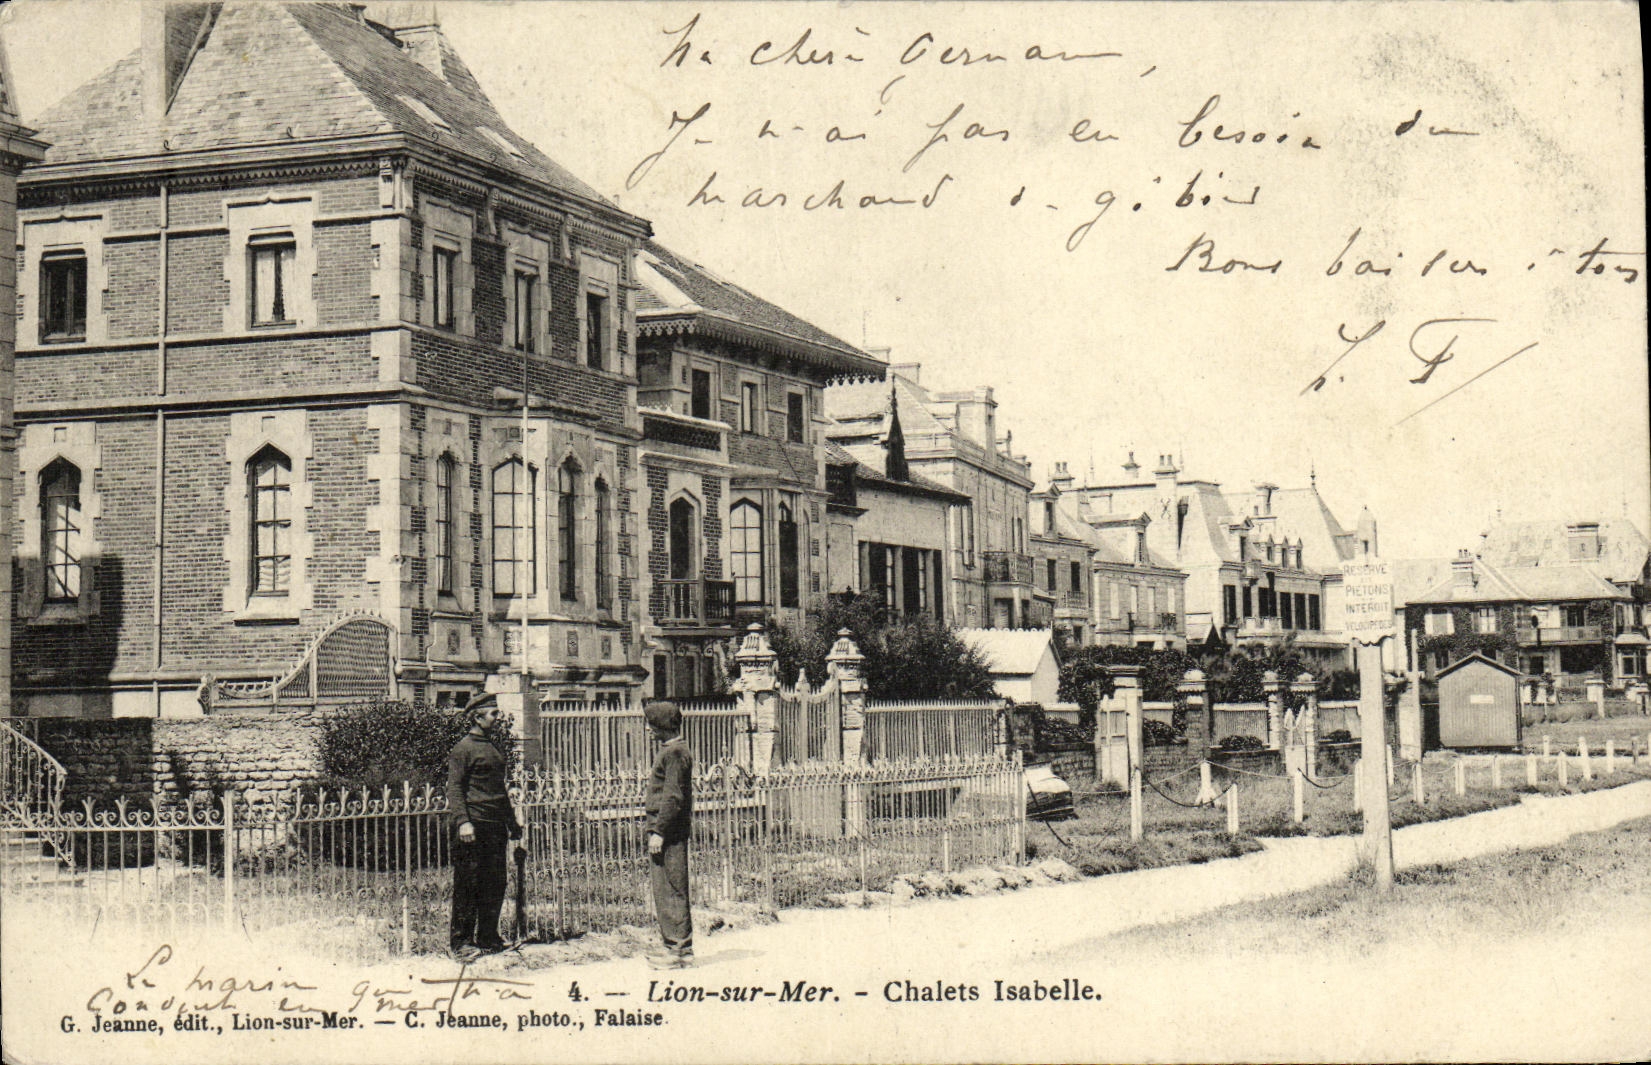 Ma chère Germaine,
Je n'ai pas eu besoin du
marchand de gibier
Bons baisers à tous
RESERVE
PIETONS
INTERDIT
VELOCIPEDES
Le marin qui m'a
conduit en mer
4. — Lion-sur-Mer. - Chalets Isabelle.
G. Jeanne, édit., Lion-sur-Mer. — C. Jeanne, photo., Falaise.